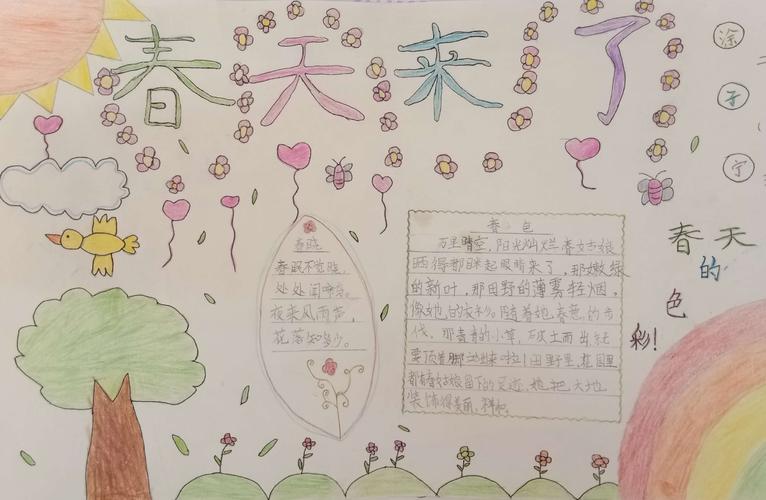 春天来了
涂
子
宁
春晓
春眠不觉晓，
处处闻啼鸟。
夜来风雨声，
花落知多少。
春色
万里晴空，阳光灿烂春姑娘
晒得都眯起眼睛来了，那嫩绿
的新叶，那田野的薄雾轻烟，
像她的衣衫。随着她，春葱的步
伐，那青青的小草，破土而出
要顶着脚 出来啦！田野里，花园里
都有春姑娘留下的足迹，她把大地
装饰得美丽
春天
的
色
彩！